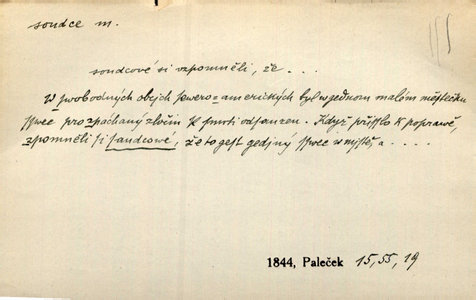 soudce m.
soudcové si vzpomněli, že . . .
W swobodných obcjch sewero-amerických byl w gednom malém městečku
sswec pro zpáchaný zločin k smrti odsauzen. Když přisslo k poprawě,
zpomněli si saudcové, že to gest gediný sswec w městě, a . . . .
1844, Paleček 15,55,19